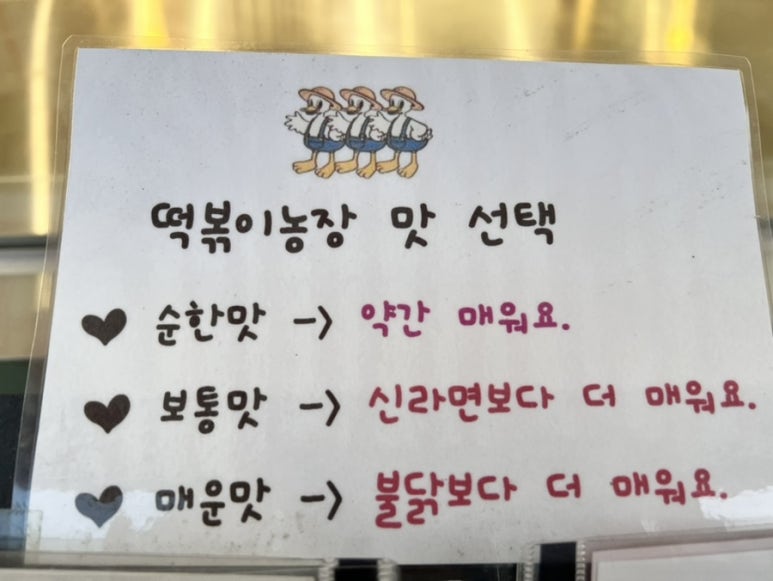 떡볶이농장 맛 선택
♥ 순한맛 -> 약간 매워요.
♥ 보통맛 -> 신라면보다 더 매워요.
♥ 매운맛 -> 불닭보다 더 매워요.